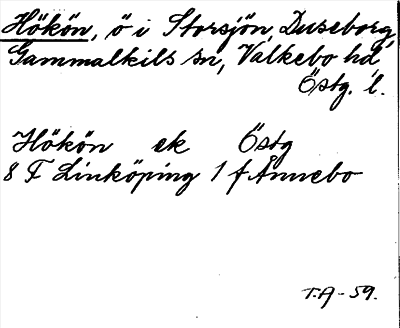 Hökön, ö i Storsjön, Duseborg,
Gammalkils sn, Valkebo hd
Östg. l.
Hökön ek Östg
8 F Linköping 1 f Ånnebo
T.A - 59.